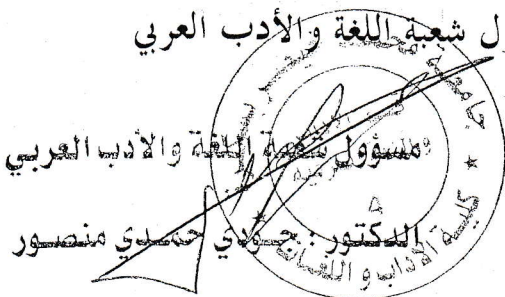 ل شعبة اللغة والأدب العربي
مسؤول شعبة اللغة والأدب العربي
الدكتور : جودي حمدي منصور
جامعة محمد
كلية الآداب و اللغات